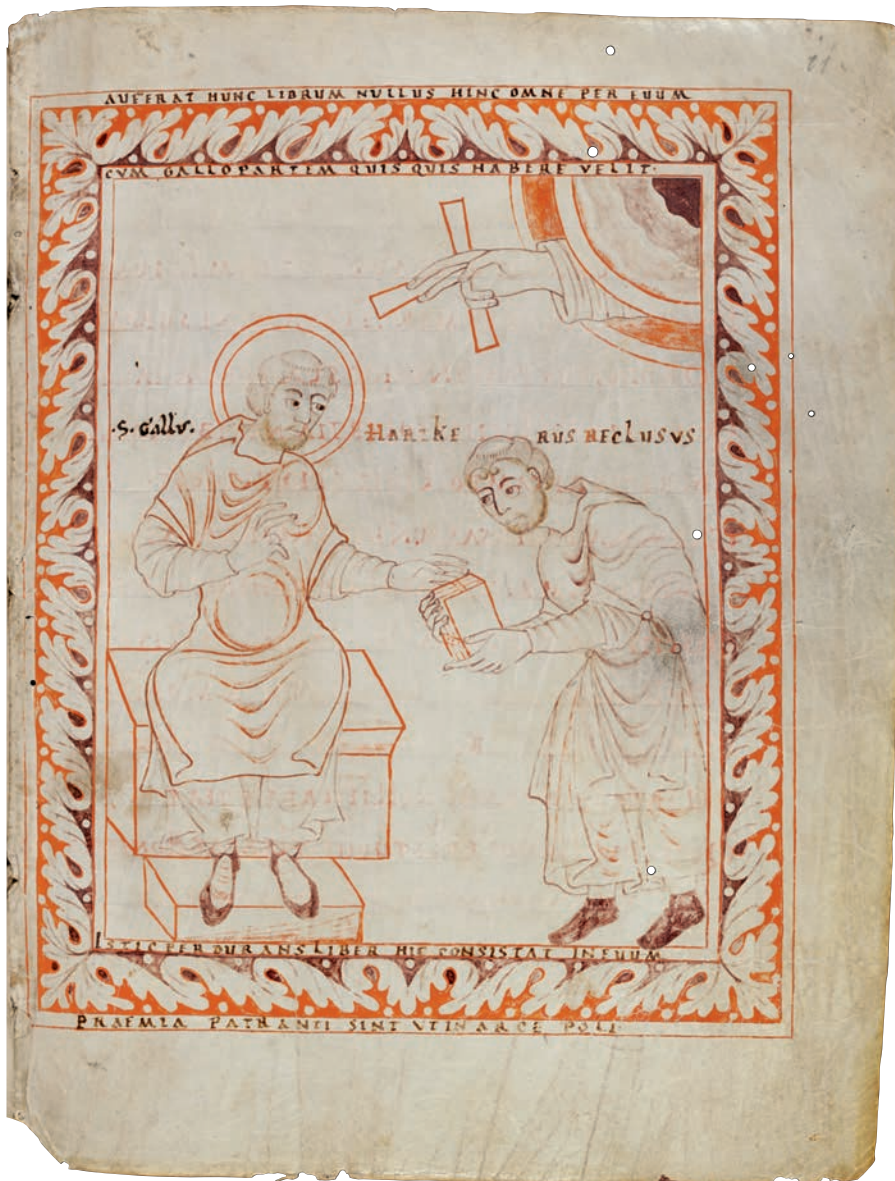 AUFERAT HUNC LIBRUM NULLUS HINC OMNE PER EUUM
CVM GALLO PARTEM QUIS QUIS HABERE VELIT·
·S· Gallus· HARTKERUS RECLUSUS
ISTIC PERDURANS LIBER HIC CONSISTAT IN EUUM
PRAEMIA PATRANTI SINT UT IN ARCE POLI·